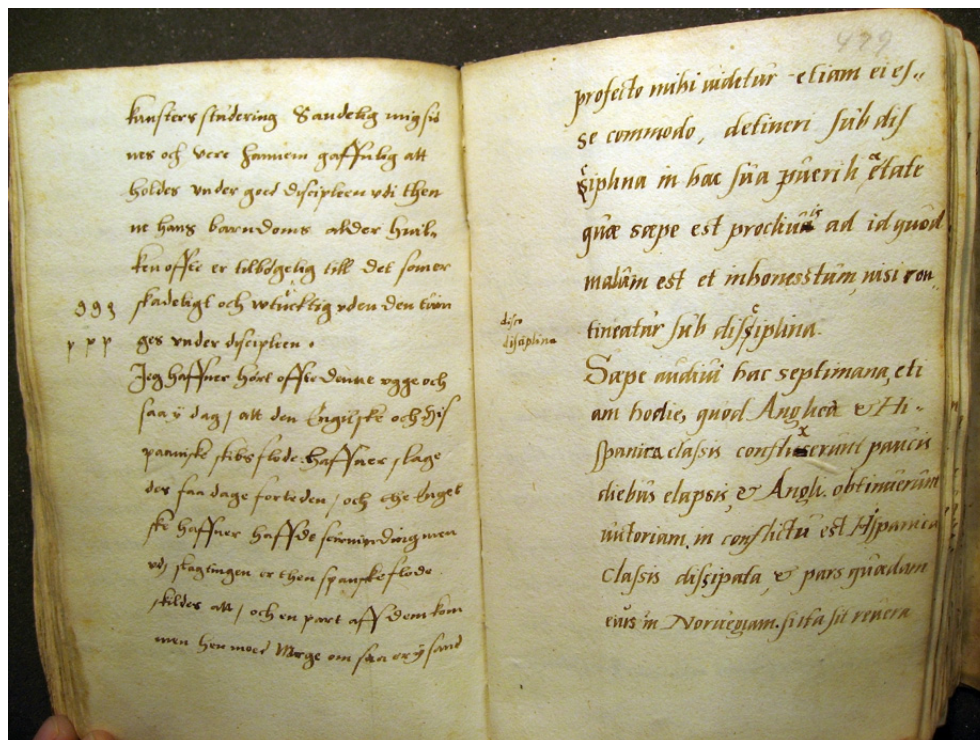 kansters studering Sandelig mig siu
nes och vere hannem gaffnlig att
holdes vnder goed discipleen vdi then
ne hans barndoms alder huil,
ken offte er tilbögelig till det somer
skadeligt och vtucktig vden den tuin
ges vnder discipleen.
Jeg haffuer hört offte denne vgge och
saa y dag, att den Engilske och His
paniske skibs flode haffuer slage
des faa dage forleden, och the Engel
ske haffuer haffde seiervinding men
vdj slagtingen er then spanske flode
skildes att, och en part aff dem kom
men hen moed Norge om saa er y sand
p p p
479
profecto mihi uidetur etiam ei es,,
se commodo, detineri sub dis
siplina in hac sua puerili ætate
quæ sæpe est procliuis ad id quod
malum est et inhonesstum, nisi con-
tineatur sub dissiplina.
disco
disciplina
Sæpe audiui hac septimana, eti
am hodie, quod Anglica & Hi-
spanica classis conflixerunt paucis
diebus elapsis, & Angli obtinuerunt
uictoriam. in conflictu est Hispanica
classis dissipata, & pars quædam
eius in Noruegiam. si ita sit reuera